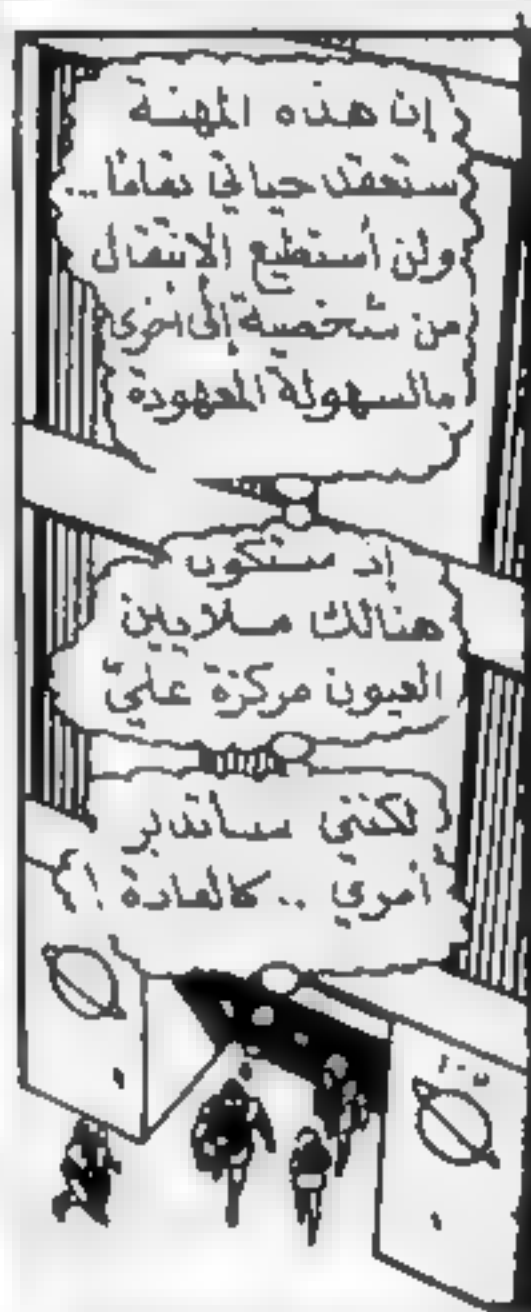 إن هذه المهنة
ستعقد حياتي تماما ...
ولن أستطيع الانتقال
من شخصية إلى أخرى
بالسهولة المعهودة
إذ ستكون
هنالك ملايين
العيون مركزة عليّ
لكنني سأتدبر
أمري .. كالعادة !